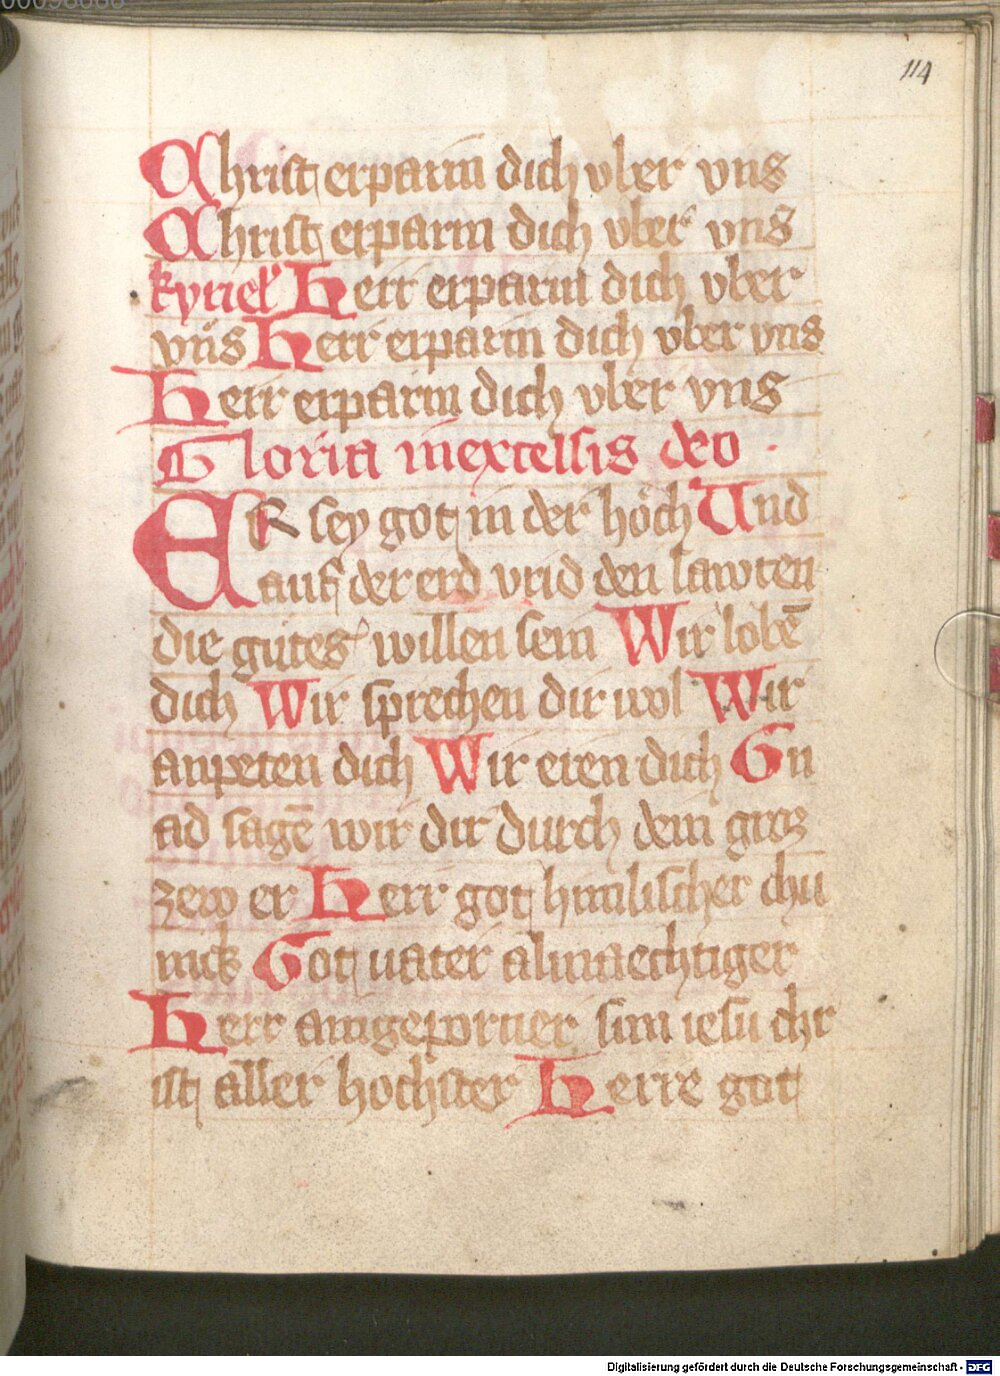 114
Christ erparm dich vber vns
Christ erparm dich vber vns
kyriel Herr erparm dich vber
vns Herr erparm dich vber vns
Herr erparm dich vber vns
Gloria inexcelsis deo
ER sey got in der höch Und
auf der erd vrid den lawten
die gutes willen sein Wir lobē
dich Wir sprechen dir wol Wir
anpeten dich Wir eren dich Gn
ad sagē wir dir durch dein groz
zew er Herr got himlischer chu
nick Got uater almaechtiger
Herr aingeporner sun iesu chr
ist aller hochster Herre got
Digitalisierung gefördert durch die Deutsche Forschungsgemeinschaft - DFG